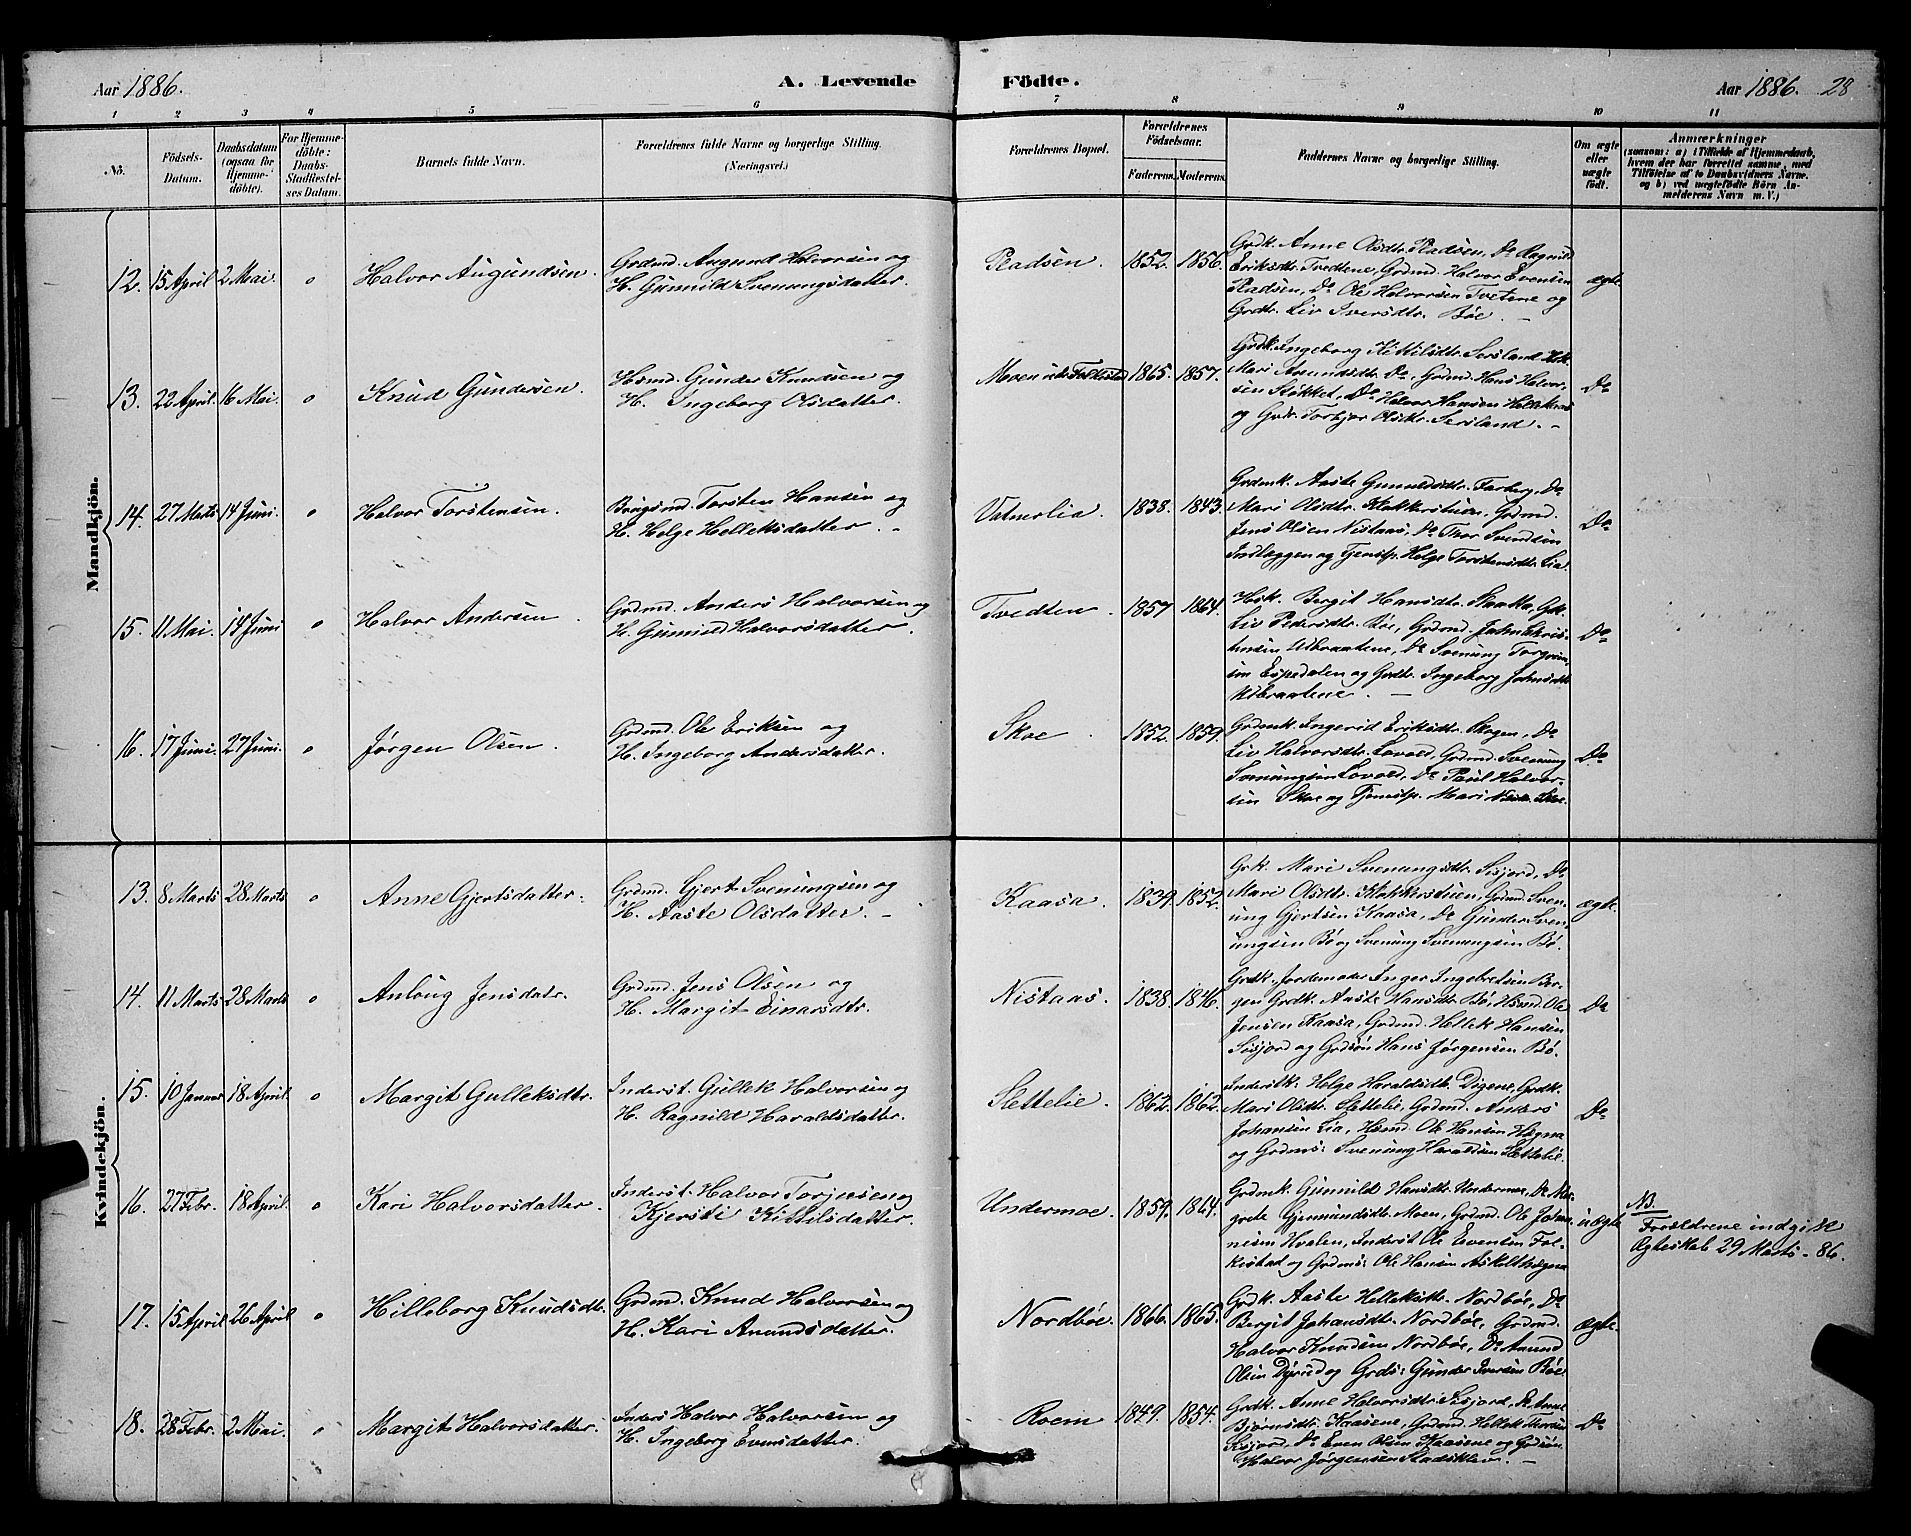 Aar 1886.
A. Levende
Födte.
Aar 1886. 28
1 2 3 4 5 6 7 8 9 10 11
No.
Födsels-
Datum.
Daabsdatum
(ogsaa for
Hjemme-
döbte).
For Hjemme-
döbte:
Daabs-
Stadfæstel-
ses Datum.
Barnets fulde Navn.
Forældrenes fulde Navne og borgerlige Stilling.
(Næringsvei.)
Forældrenes Bopæl.
Forældrenes
Födselsaar.
Faderens. Moderens.
Faddernes Navne og borgerlige Stilling.
Om ægte
eller
uægte
födt.
Anmærkninger
(saasom: a) i Tilfælde af Hjemmedaab,
hvem der har forrettet samme, med
Tilföielse af to Daabsvidners Navne.
og b) ved uægtefödte Börn An-
melderens Navn m. V.)
Mandkjön.
12. 15 April 2 Mai. o Halvor Augundsen.
Grdmd. Augund Halvorsen og
H. Gunnild Svenungsdatter.
Pladsen. 1852. 1856.
Grdk. Anne Olsdtr. Pladsen, Do Ragnild
Eriksdtr. Tvedtene, Grdmd. Halvor Evensen
Pladsen, Do Ole Halvorsen Tvetene og
Grdtr. Liv Iversdtr. Bøe. –
ægte
13. 22 April. 16 Mai. o Knud Gundersen.
Hsmd. Gunder Knudsen og
H. Ingeborg Olsdatter.
Moen 1865. 1857.
Grdk. Ingeborg Kittilsdtr. Sersland
Mari Amundsdtr. Do, Grdmd. Hans Halvor-
sen Stokket, Do Halvor Hansen
og Grdtr. Torbjør Olsdtr. Sersland. –
Do
14. 27 Marts 14 Juni. o Halvor Torstensen.
Brugsmd. Torsten Hansen og
H. Helge Helleksdatter. –
Vatnerlia. 1838. 1843.
Grdmk. Aaste Gunnuldsdtr. Farberg, Do
Mari Olsdtr. Klokkerstuen, Grdmd.
Jens Olsen Nistaas, Do Thor Svendsen
Indlæggen og Tjenstp. Helge Torstensdtr. Lia.
Do
15. 11 Mai. 14 Juni o Halvor Andersen.
Grdmd. Anders Halvorsen og
H. Gunnild Halvorsdatter.
Tvedten. 1857 1864.
Hsk. Bergit Hansdtr. Skaatta, Gdk.
Liv Pedersdtr. Bøe, Grdmd. John Chris-
tensen Utbraatene, Do Svenung Torgrim-
sen Espedalen og Grdtr. Ingeborg Johnsdtr.
Utbraatene. –
Do
16. 17 Juni. 27 Juni. o Jørgen Olsen.
Grdmd. Ole Eriksen og
H. Ingeborg Andersdatter.
Skoe 1852. 1859.
Grdmk. Ingerid Eriksdtr. Skogen, Do
Liv Halvorsdtr. Lovold, Grdmd. Svenung
Svenungsen Lovold, Do Paul Halvor-
sen Skoe og Tjenestp. Mari
Do
Kvindekjön.
13. 8 Marts 28 Marts o Anne Gjertsdatter.
Grdmd. Gjert Svenungsen og
H. Aaste Olsdatter. –
Kaasa. 1839. 1852.
Grk. Mari Svenungsdtr. Sisjord, Do
Mari Olsdtr. Klokkerstuen, Grdmd. Sven-
ung Gjertsen Kaasa, Do Gunder Sven-
ungsen Bø og Svenung Svenungsen Bø.
ægte.
14. 11 Marts 28 Marts o Anlaug Jensdatr.
Grdmd. Jens Olsen og
H. Margit Einarsdtr.
Nistaas. 1838. 1846.
Grdk. Jordemoder Inger Ingebretsen Ber-
gen Grdk. Aaste Hansdtr. Bø, Hsmd. Ole
Jensen Kaasa, Grdmd. Hellek Hansen
Sisjord og Grdsøn Hans Jørgensen Bø.
Do
15. 10 Januar 18 April. o Margit Gulleksdtr.
Inderst. Gullek Halvorsen og
H. Ragnild Haraldsdatter.
Slettelie. 1862. 1862.
Inderstk. Helge Haraldsdtr. Digene, Grdk.
Mari Olsdtr. Slettelie, Grdmd. Anders
Johansen Lia, Hsmd. Ole Hansen Hægna
og Grdms: Svenung Haraldsen Slettelie.
Do
16. 27 Febr. 18 April. o Kari Halvorsdatter.
Inderst. Halvor Torjusen og
Kjersti Kittilsdatter.
Undermoe. 1859. 1864.
Grdmk. Gunnild Hansdtr. Undermoe, Do Mar-
grete Gjermundsdtr. Moen, Grdmd. Ole Johan-
nesen Hvalen, Inderst Ole Evensen Fol-
kestad og Grdms: Ole Hansen Askelthægna
uægte
NB.
Forældrene indgik
Ægteskab 29 Marts – 86.
17. 15 April 26 April o Hilleborg Knudsdtr.
Grdmd. Knud Halvorsen og
H. Kari Amundsdatter.
Nordbøe. 1866. 1865.
Grdk. Aaste Helleksdtr. Nordbøe, Do
Bergit Johansdtr. Nordbøe, Grdmd.
Halvor Knudsen Nordbøe, Do Amund
Olsen Dyrud og Grds: Gunder Iversen Bøe
ægte.
18. 28 Febr. 2 Mai. o Margit Halvorsdatter.
Inders Halvor Halvorsen og
H. Ingeborg Evensdatter.
Roem 1849. 1854.
Grdk. Anne Halvorsdtr. Sisjord, Do Anne
Bjørnsdtr. Kaasene, Grdmd. Hellek Thorsen
Sisjord, Do Even Olsen Kaasene og Grdsøn
Halvor Jørgensen –
Do